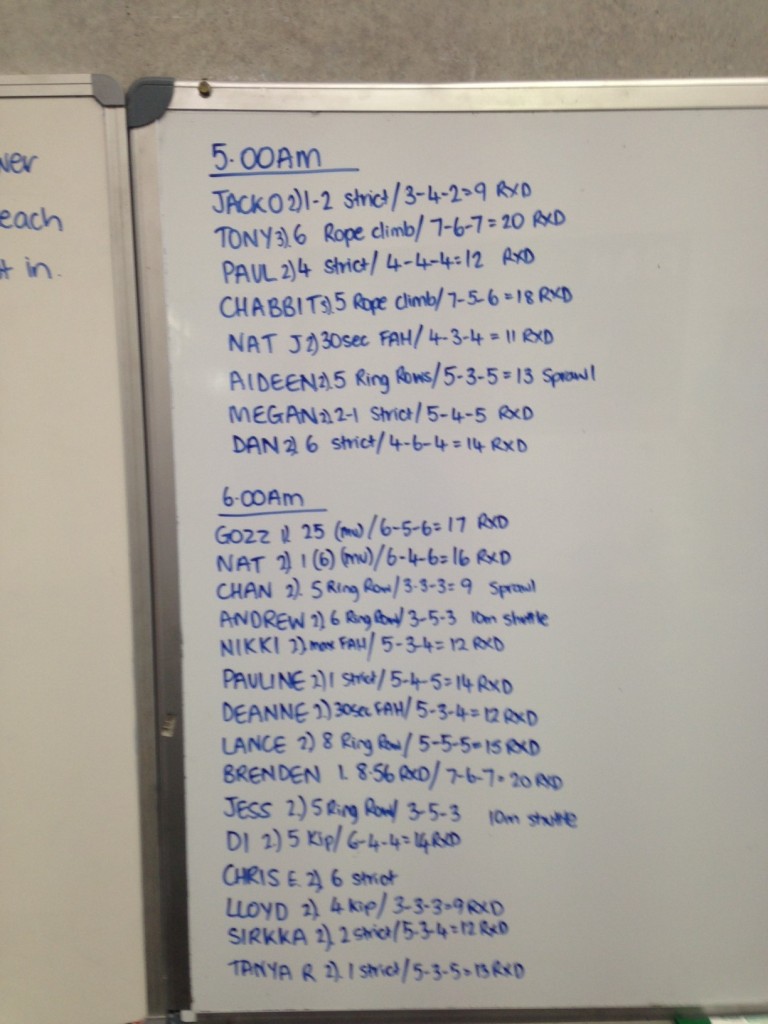 ver
each
t in.
5.00AM
JACKO 2) 1-2 strict/3-4-2=9 RXD
TONY 3). 6 Rope climb/ 7-6-7=20 RXD
PAUL 2) 4 strict/ 4-4-4=12 RXD
CHABBIT 3). 5 Rope climb/7-5-6=18 RXD
NAT J 2) 30sec FAH/ 4-3-4 = 11 RXD
AIDEEN 2). 5 Ring Rows/5-3-5=13 Sprawl
MEGAN 2) 2-1 Strict/5-4-5 RXD
DAN 2) 6 strict/4-6-4=14 RXD
6.00AM
GOZZ 1) 25 (mu)/6-5-6=17 RXD
NAT 2) 1(6) (mu)/6-4-6=16 RXD
CHAN 2). 5 Ring Row/3-3-3=9 Sprawl
ANDREW 2) 6 Ring Row/ 3-5-3 10m shuttle
NIKKI 2) max FAH/ 5-3-4=12 RXD
PAULINE 2) 1 strict/5-4-5=14 RXD
DEANNE 2) 30sec FAH/5-3-4=12 RXD
LANCE 2) 8 Ring Row/ 5-5-5=15 RXD
BRENDEN 1. 8.56 RXD/ 7-6-7=20 RXD
JESS 2.) 5 Ring Row/ 3-5-3 10m shuttle
DI 2) 5 Kip/6-4-4=14 RXD
CHRIS E. 2) 6 strict
LLOYD 2). 4 Kip/ 3-3-3=9 RXD
SIRKKA 2). 2 strict/5-3-4=12 RXD
TANYA R 2). 1 strict/5-3-5=13 RXD